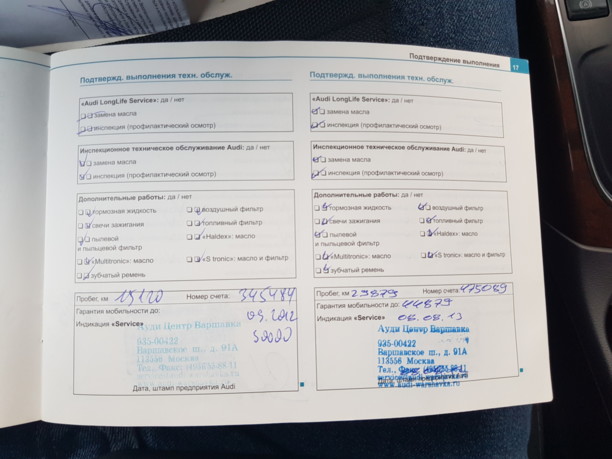 Подтверждение выполнения 17
Подтвержд. выполнения техн. обслуж.
«Audi LongLife Service»: да / нет
замена масла
инспекция (профилактический осмотр)
Инспекционное техническое обслуживание Audi: да / нет
замена масла
инспекция (профилактический осмотр)
Дополнительные работы: да / нет
тормозная жидкость воздушный фильтр
свечи зажигания топливный фильтр
пылевой «Haldex»: масло
и пыльцевой фильтр
«Multitronic»: масло «S tronic»: масло и фильтр
зубчатый ремень
Пробег, км 15120 Номер счета: 345484
Гарантия мобильности до:
09.2012
Индикация «Service»
Ауди Центр Варшавка
30000
935-00422
Варшавское ш., д. 91А
113556 Москва
Тел., Факс:
Дата, штамп предприятия Audi
Подтвержд. выполнения техн. обслуж.
«Audi LongLife Service»: да / нет
замена масла
инспекция (профилактический осмотр)
Инспекционное техническое обслуживание Audi: да / нет
замена масла
инспекция (профилактический осмотр)
Дополнительные работы: да / нет
тормозная жидкость воздушный фильтр
свечи зажигания топливный фильтр
пылевой «Haldex»: масло
и пыльцевой фильтр
«Multitronic»: масло «S tronic»: масло и фильтр
зубчатый ремень
Пробег, км 29879 Номер счета: 475089
Гарантия мобильности до: 44879
Индикация «Service» 06.08.13
Ауди Центр Варшавка
935-00422
Варшавское ш., д. 91А
113556 Москва
Тел., Факс:
www.audi-warshavka.ru